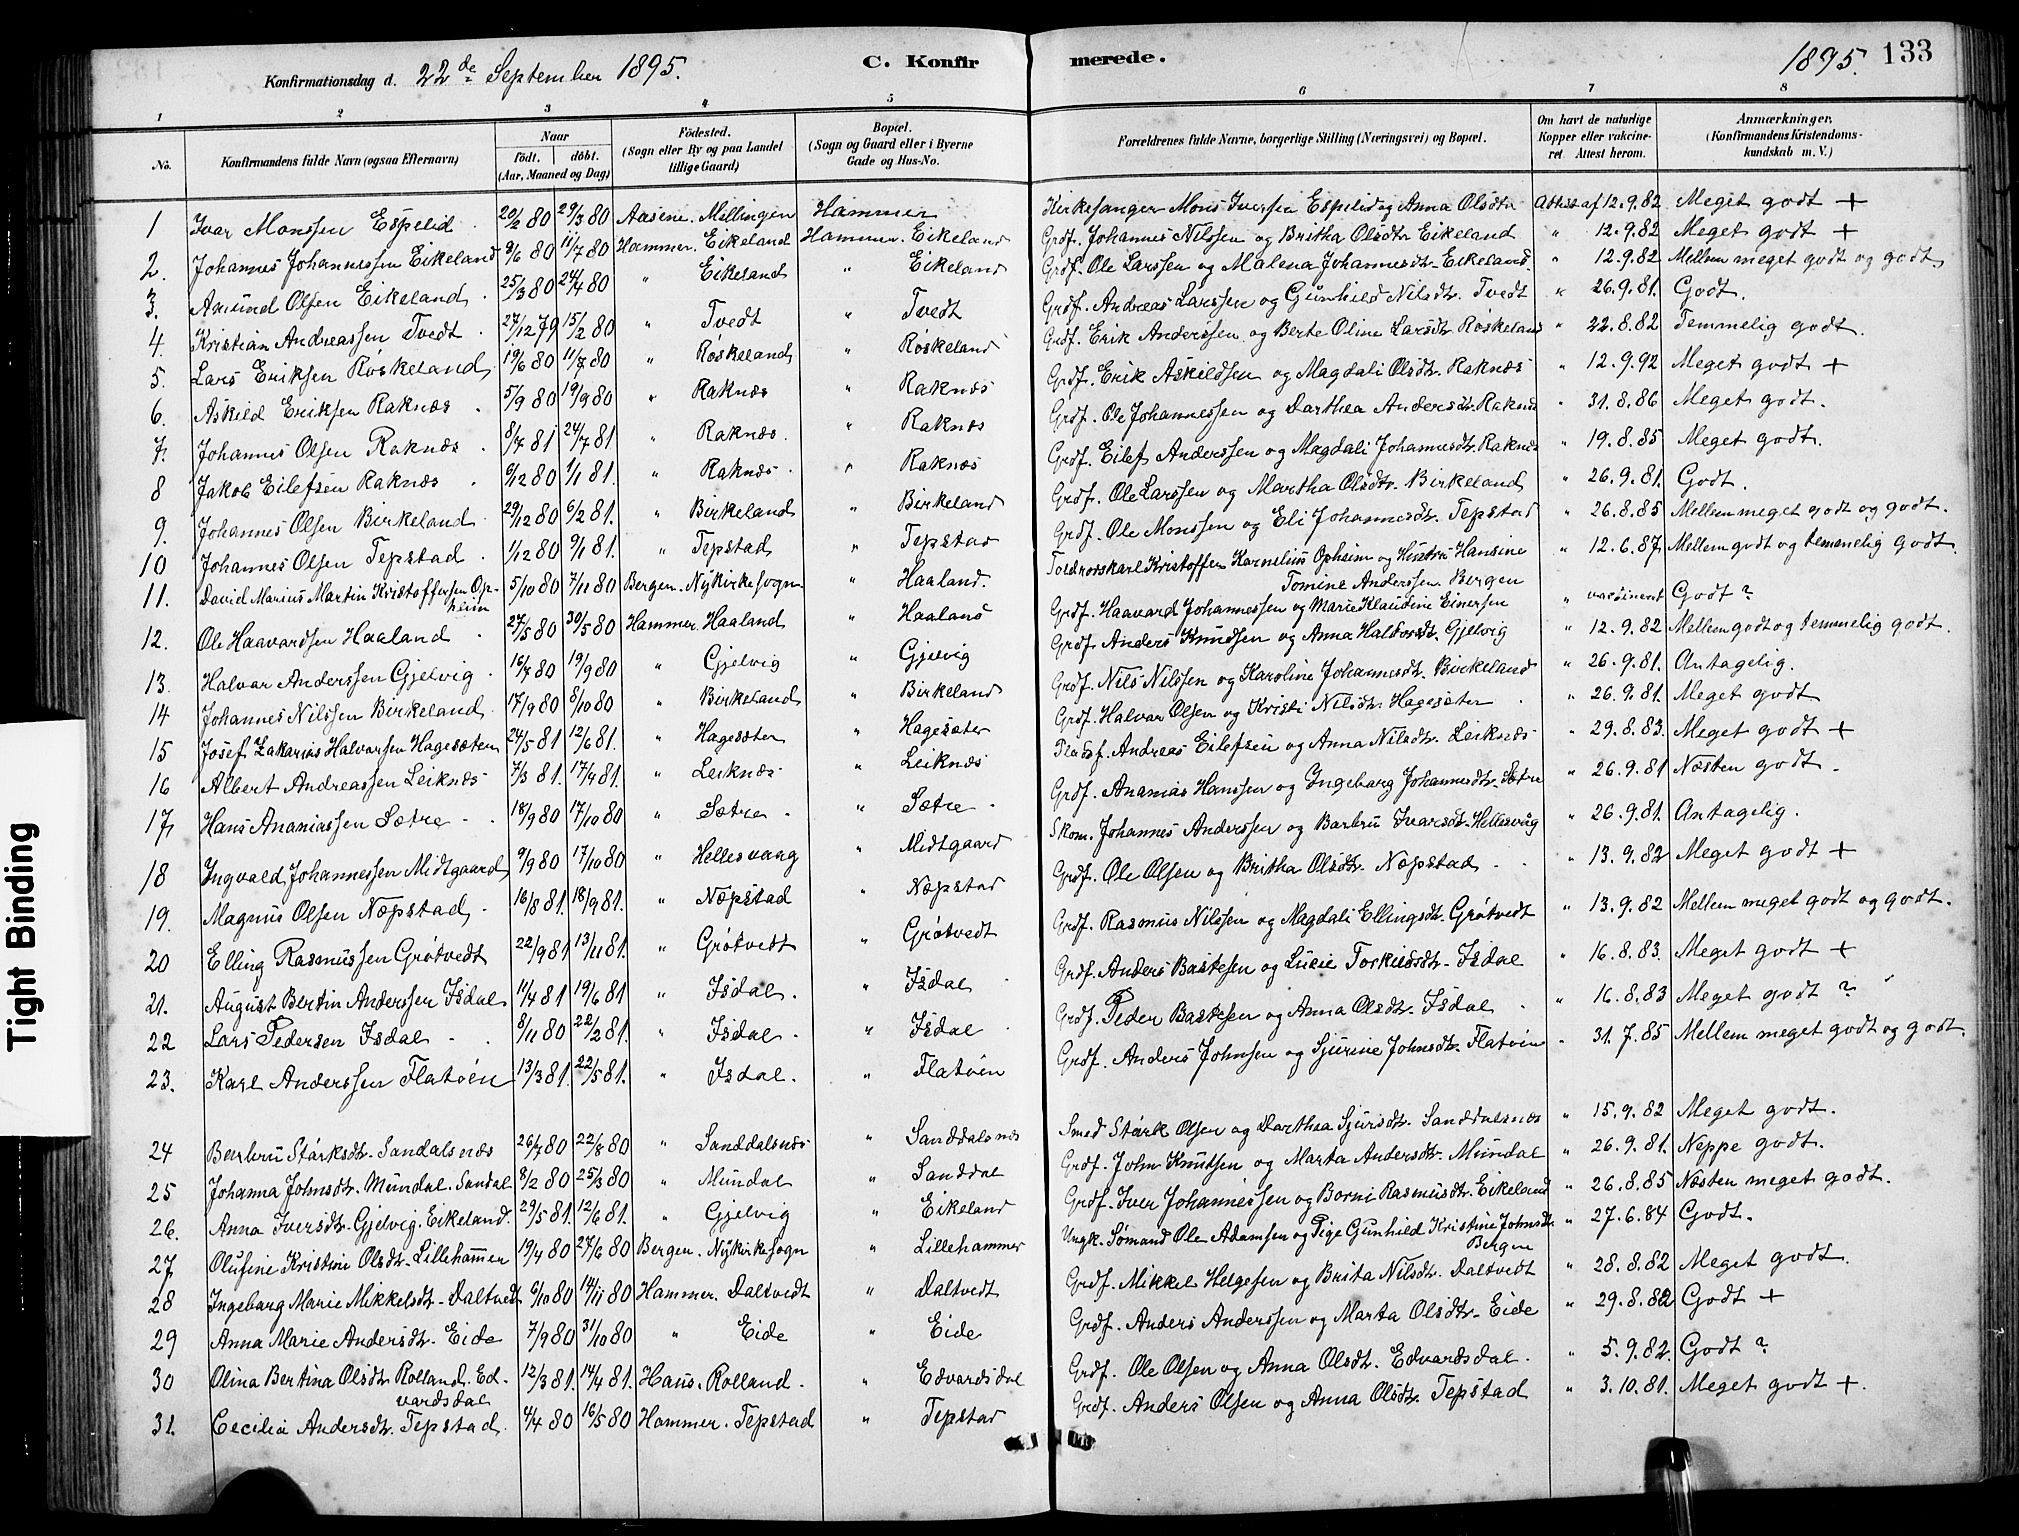 Konfirmationsdag d. 22de September 1895. C. Konfirmerede. 1895. 133
1 2 3 4 5 6 7 8
No. Konfirmandens fulde Navn (ogsaa Efternavn) Naar født. døbt. (Aar, Maaned og Dag) Fødested. (Sogn eller By og paa Landet tillige Gaard) Bopæl. (Sogn og Gaard eller i Byerne Gade og Hus-No. Forældrenes fulde Navne, borgerlige Stilling (Næringsvei) og Bopæl. Om havt de naturlige Kopper eller vakcineret. Attest herom. Anmærkninger. (Konfirmandens Kristendomskundskab m. V.)
1 Ivar Monssen Espelid 20/2 80 29/3 80 Aasene. Millingen Hammer Kirkesanger Mons Iversen Espelid og Anna Olsdtr Attest af 12.9.82 Meget godt +
2. Johannes Johannessen Eikeland 9/6 80 11/7 80 Hammer. Eikeland Hammer. Eikeland Grdf. Johannes Nilssen og Britha Olsdtr Eikeland " 12.9.82 Meget godt +
3. Amund Olsen Eikeland 25/3 80 24/4 80 " Eikeland " Eikeland Grdf. Ole Larssen og Malena Johannesdtr. Eikeland. " 12.9.82 Mellem meget godt og godt.
4. Kristian Andreassen Tvedt 27/12 79 15/2 80 " Tvedt " Tvedt Grdf. Andreas Larssen og Gunhild Nilsdtr. Tvedt " 26.9.81. Godt.
5. Lars Eriksen Røskeland 19/6 80 11/7 80 " Røskeland " Røskeland Grdf. Erik Anderssen og Berte Oline Larsdtr Røskeland " 22.8.82 Temmelig godt.
6. Askild Eriksen Raknæs 5/9 80 19/9 80 " Raknæs " Raknæs Grdf. Erik Askildsen og Magdali Olsdtr. Raknæs " 12.9.92 Meget godt +
7. Johannes Olsen Raknæs 8/7 81 24/7 81 " Raknæs. " Raknæs Grdf. Ole Johannessen og Darthea Andersdtr. Raknæs " 31.8.86 Meget godt.
8 Jakob Eilefsen Raknæs 6/12 80 1/1 81. " Raknæs. " Raknæs Grdf. Eilef Anderssen og Magdali Johannesdtr. Raknæs " 19.8.85 Meget godt.
9. Johannes Olsen Birkeland 29/12 80 6/2 81. " Birkeland " Birkeland Grdf. Ole Larssen og Martha Olsdtr. Birkeland " 26.9.81. Godt.
10 Johannes Olsen Tepstad 1/12 80 9/1 81. " Tepstad " Tepstad Grdf. Ole Monssen og Eli Johannesdtr. Tepstad " 26.8.85 Mellem meget godt og godt.
11. David Marius Martin Kristoffersen Op- 5/10 80 7/11 80 Bergen. Nykirkesogn " Haaland. Toldrorskarl Kristoffer Kornelius Opheim og Hustru Hansine " 12.6.87 Mellem godt og temmelig godt.
heim Tomine Anderssen. Bergen
12. Ole Haavardsen Haaland 27/5 80 30/5 80 Hammer. Haaland " Haaland Grdf. Haavard Johannessen og Marie Klaudine Einersen " vaccineret Godt ?
13. Halvar Anderssen Gjelvig 16/7 80 19/9 80 " Gjelvig " Gjelvig Grdf. Anders Knudsen og Anna Haldorsdtr. Gjelvig " 12.9.82 Mellem godt og temmelig godt.
14 Johannes Nilssen Birkeland 17/9 80 8/10 80 " Birkeland " Birkeland Grdf. Nils Nilssen og Karoline Johannesdtr. Birkeland " 26.9.81. Antagelig.
15 Josef Zakarias Halvarsen Hagesæter 24/5 81 12/6 81. " Hagesæter " Hagesæter Grdf. Halvar Olsen og Kristi Nilsdtr. Hagesæter " 26.9.81. Meget godt
16 Albert Andreassen Leiknæs 7/3 81. 17/4 81. " Leiknæs " Leiknæs Pladsf. Andreas Eilefsen og Anna Nilsdtr. Leiknæs " 29.8.83. Meget godt +
17. Hans Ananiassen Sætre 18/9 80 17/10 80 " Sætre " Sætre Grdf. Ananias Hanssen og Ingeborg Johannesdtr. Sætre " 26.9.81 Næsten godt.
18 Ingvald Johannessen Midtgaard 9/9 80 17/10 80 " Hellesvaag " Midtgaard Skom. Johannes Anderssen og Barbru Ivarsdtr. Hellesvåg " 26.9.81. Antagelig.
19. Magnus Olsen Næpstad 16/8 81. 18/9 81. " Næpstad " Næpstad Grdf. Ole Olsen og Britha Olsdtr. Næpstad " 13.9.82 Meget godt +
20 Elling Rasmussen Grøtvedt 22/9 81 13/11 81. " Grøtvedt " Grøtvedt Grdf. Rasmus Nilssen og Magdali Ellingsdtr. Grøtvedt " 13.9.82 Mellem meget godt og godt.
21. August Bertin Anderssen Isdal 11/4 81 19/6 81 " Isdal. " Isdal Grdf. Anders Bastesen og Lucie Torkildsdtr. Isdal " 16.8.83. Meget godt +
22 Lars Pedersen Isdal 8/11 80 22/2 81. " Isdal. " Isdal Grdf. Peder Bastesen og Anna Olsdtr. Isdal " 16.8.83 Meget godt ?
23. Karl Anderssen Flatøen 13/3 81. 22/5 81. " Isdal. " Flatøen Grdf. Anders Johnsen og Sjurine Johnsdtr. Flatøen " 31.7.85 Mellem meget godt og godt.
24 Barbru Størksdtr. Sandalsnæs 26/7 80 22/8 80 " Sanddalsnæs " Sanddalsnæs Smed Størk Olsen og Darthea Sjursdtr. Sanddalsnæs " 15.9.82 Meget godt.
25 Johanna Johnsdtr. Mundal. Sandal 8/2 80 25/3 80 " Mundal " Sanddal Grdf. John Knutsen og Marta Andersdtr. Mundal " 26.9.81. Neppe godt.
26. Anna Iversdtr. Gjelvig. Eikeland. 29/5 81. 12/6 81. " Gjelvig " Eikeland Grdf. Iver Johannessen og Borni Rasmusdtr. Eikeland " 26.8.85 Næsten meget godt.
27. Olufine Kristine Olsdtr. Lillehammer 19/4 80 27/6 80 Bergen. Nykirkesogn " Lillehammer Ungk. Sømand Ole Adamsen og Pige Gunhild Kristine Johnsdtr. " 27.6.84 Godt.
Bergen
28 Ingeborg Marie Mikkelsdtr. Daltvedt 6/10 80 14/11 80 Hammer. Daltvedt " Daltvedt Grdf. Mikkel Helgesen og Brita Nilsdtr. Daltvedt " 28.8.82 Meget godt.
29 Anna Marie Andersdtr. Eide 7/9 80 31/10 80 " Eide " Eide Grdf. Anders Anderssen og Marta Olsdtr. Eide " 29.8.82 Godt +
30 Olina Bertina Olsdtr. Rolland. Ed- 12/3 81. 14/4 81. Haus. Rolland. " Edvardsdal Grdf. Ole Olsen og Anna Olsdtr. Edvardsdal. " 5.9.82. Godt ?
vardsdal
31. Cecilia Andersdtr. Tepstad. 4/4 80 16/5 80 Hammer. Tepstad " Tepstad Grdf. Anders Olsen og Anna Olsdtr. Tepstad " 3.10.81. Meget godt +.
Tight Binding